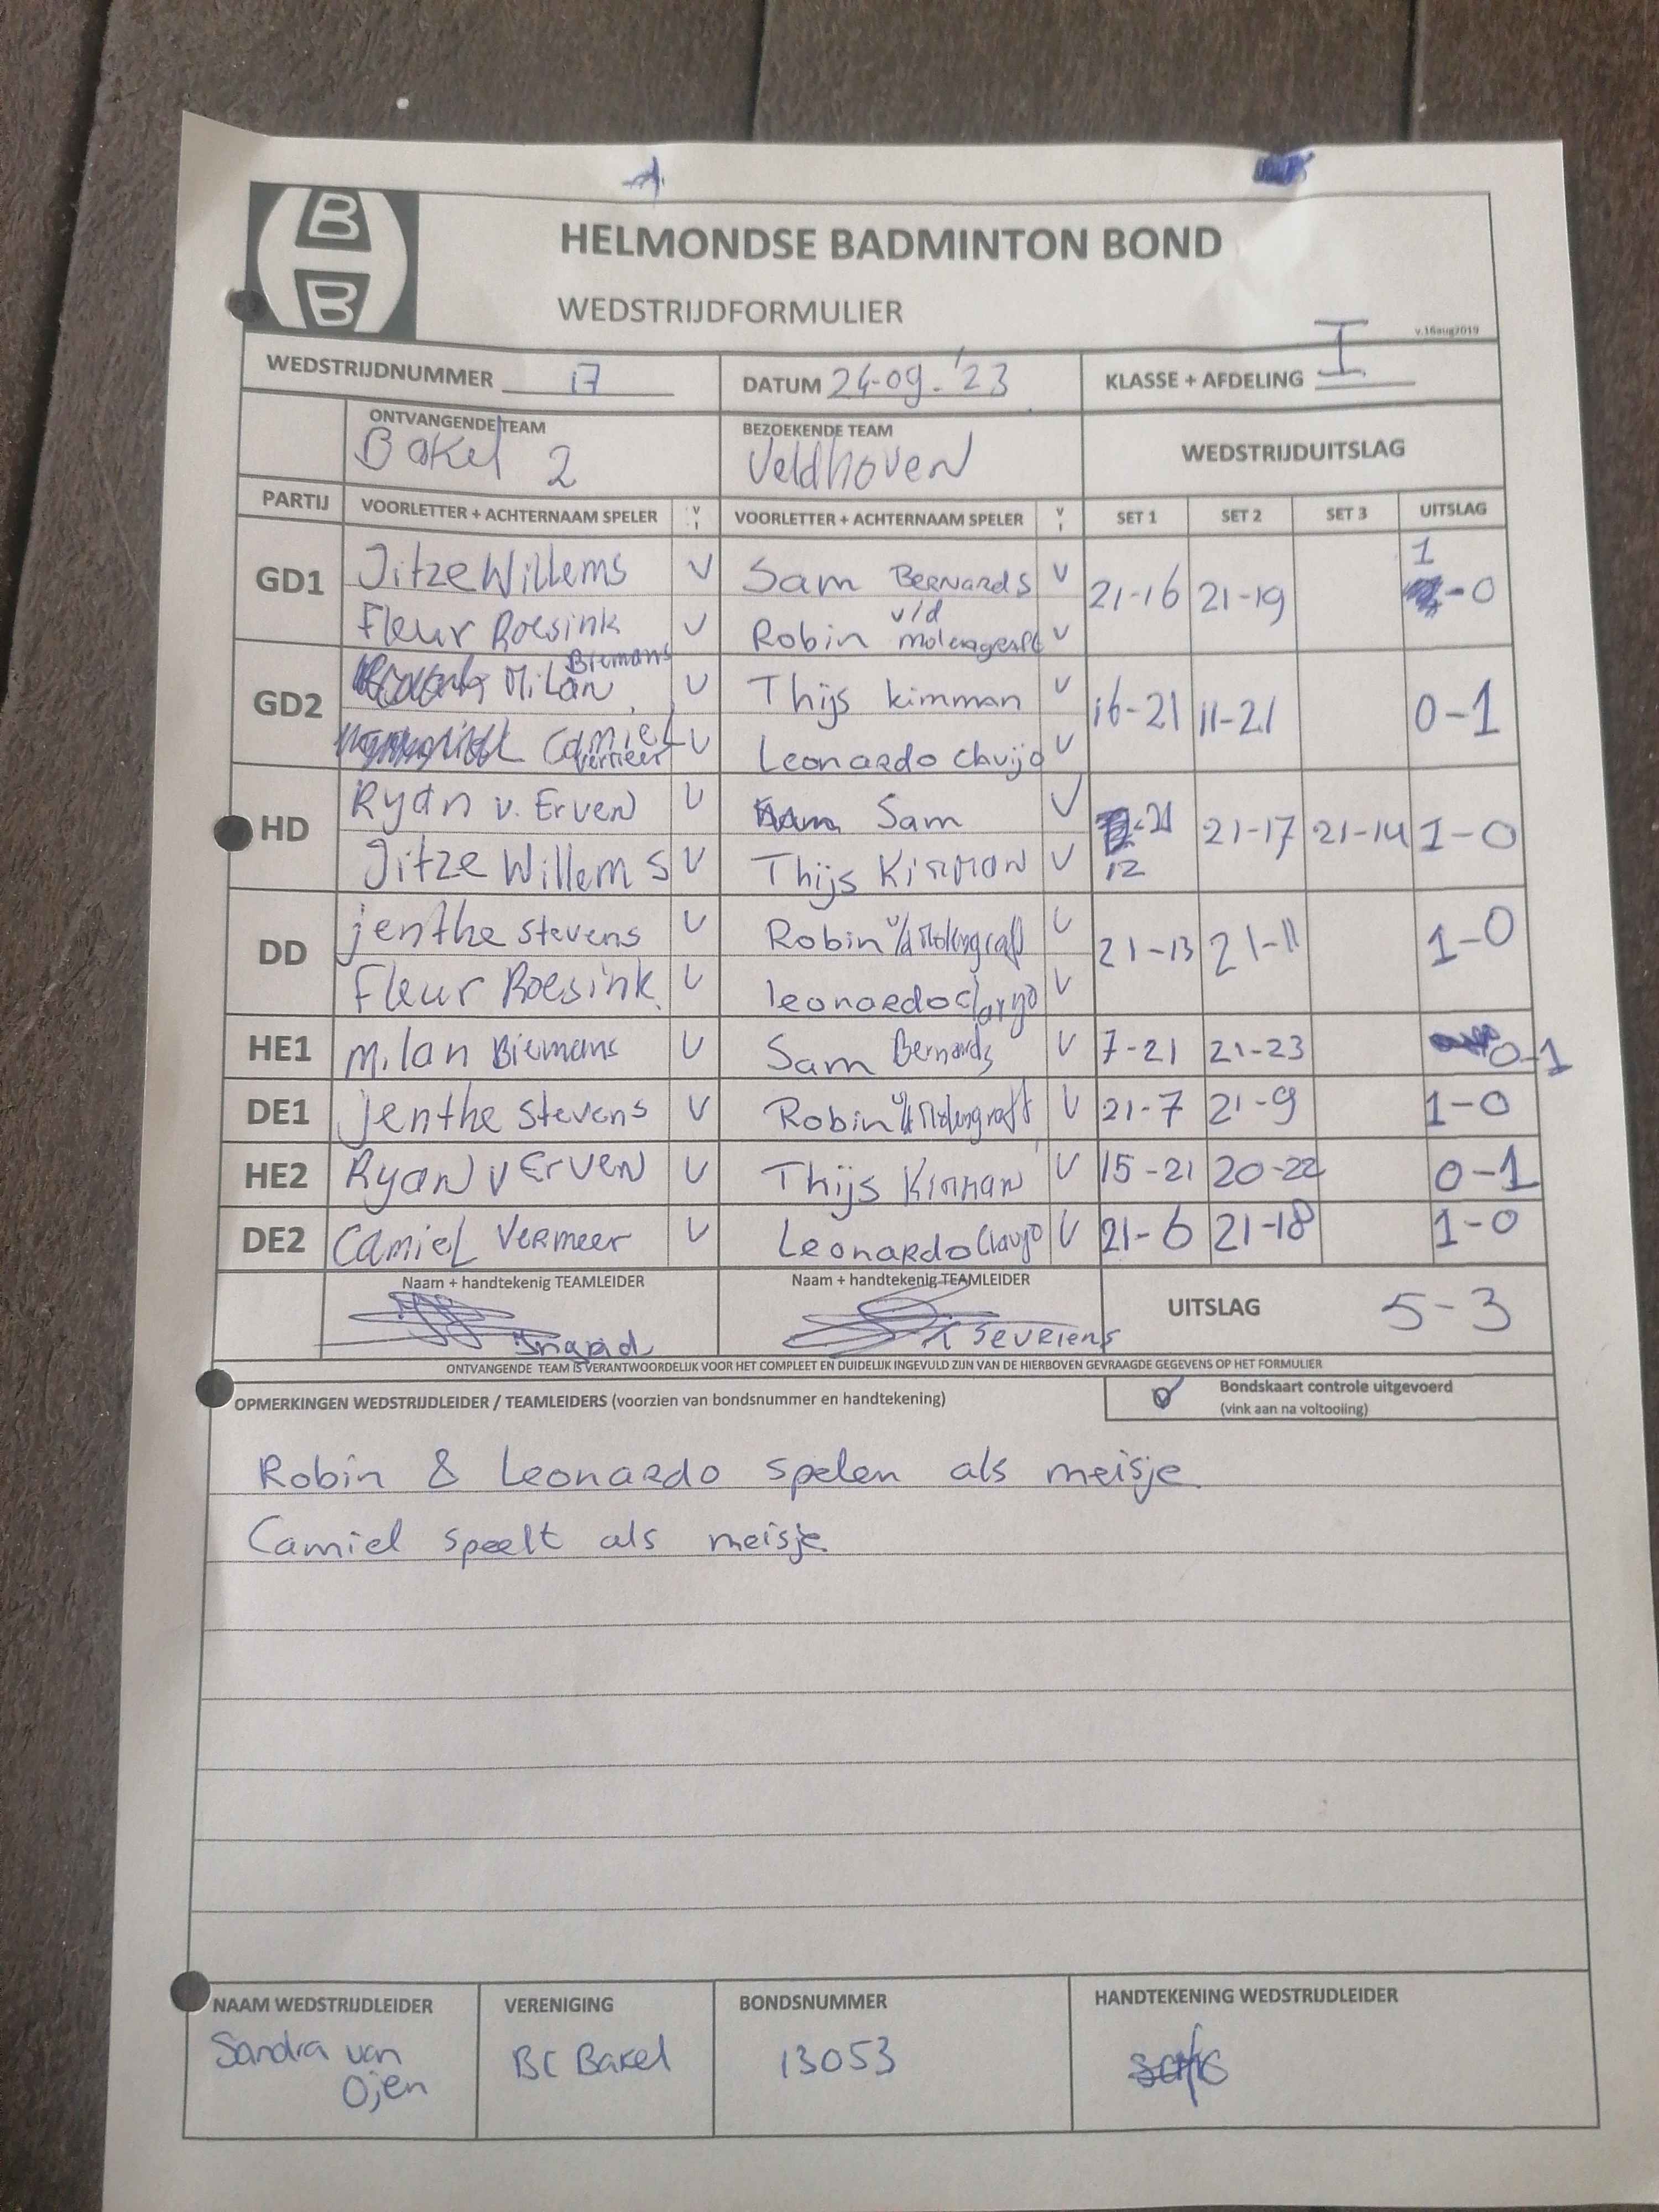 B
B
HELMONDSE BADMINTON BOND
WEDSTRIJDFORMULIER
v.16aug2019
WEDSTRIJDNUMMER 17 DATUM 24-09-'23 KLASSE + AFDELING I
ONTVANGENDE TEAM BEZOEKENDE TEAM WEDSTRIJDUITSLAG
Bakel 2 Veldhoven
PARTIJ VOORLETTER + ACHTERNAAM SPELER V VOORLETTER + ACHTERNAAM SPELER V SET 1 SET 2 SET 3 UITSLAG
GD1 Jitze Willems V Sam Bernards V 21-16 21-19 1-0
Fleur Roesink V Robin v/d V
GD2 Milan Biemans V Thijs kimman V 16-21 11-21 0-1
Camiel Vermeer V Leonardo Clavijo V
HD Ryan v. Erven V Sam V 12-21 21-17 21-14 1-0
Jitze Willems V Thijs Kimman V
DD jenthe Stevens V Robin v/d Molengraft V 21-13 21-11 1-0
Fleur Roesink V leonardo V
HE1 Milan Biemans V Sam Bernards V 7-21 21-23 0-1
DE1 jenthe Stevens V Robin v/d Molengraft V 21-7 21-9 1-0
HE2 Ryan v Erven V Thijs Kimman V 15-21 20-22 0-1
DE2 Camiel Vermeer V Leonardo Clavijo V 21-6 21-18 1-0
Naam + handtekenig TEAMLEIDER Naam + handtekenig TEAMLEIDER UITSLAG 5-3
Ingrid Severiens
ONTVANGENDE TEAM IS VERANTWOORDELIJK VOOR HET COMPLEET EN DUIDELIJK INGEVULD ZIJN VAN DE HIERBOVEN GEVRAAGDE GEGEVENS OP HET FORMULIER
OPMERKINGEN WEDSTRIJDLEIDER / TEAMLEIDERS (voorzien van bondsnummer en handtekening) Bondskaart controle uitgevoerd
(vink aan na voltooiing)
Robin & Leonardo spelen als meisje
Camiel speelt als meisje.
NAAM WEDSTRIJDLEIDER VERENIGING BONDSNUMMER HANDTEKENING WEDSTRIJDLEIDER
Sandra van BC Bakel 13053
Ojen